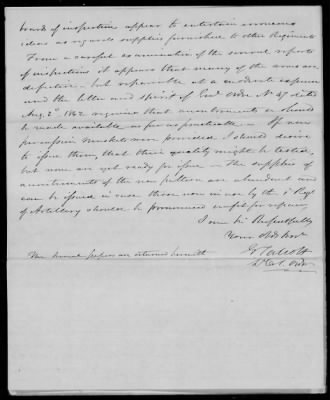 boards of inspection appear to entertain erroneous
ideas as regards supplies furnished to other Regiments
From a careful examination of the several reports
of inspections it appears that many of the arms are
defective - but repairable at a moderate expense
and the letter and spirit of Genl Orders No 47 dated
Aug 2d 1842 requires that accoutrements &c should
be made available as far as practicable - If new
percussion muskets were provided I should desire
to issue them, that their quality might be tested,
but none are yet ready for issue - The supplies of
accoutrements of the new pattern are abundant and
can be issued in case those now in use by the Regt
of Artillery should be pronounced unfit for repairs
I am Sir Respectfully
Your Obdt Servt
G Talcott
Lt Col. Ord.
The several papers are returned herewith